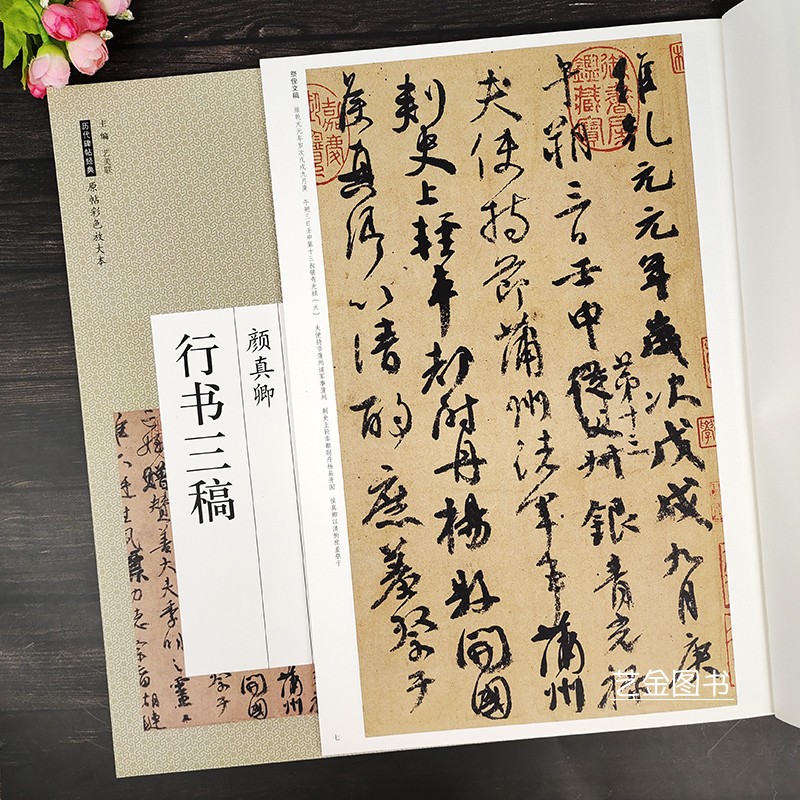 历代碑帖经典
主编 艺美联
原帖彩色放大本
颜真卿
行书三稿
祭侄文稿
维乾元元年岁次戊戌九月庚 午朔三日壬申第十三叔银青光禄（大） 夫使持节蒲州诸军事蒲州 刺史上轻车都尉丹杨县开国 侯真卿以清酌庶羞祭于
維乾元元年歲次戊戌九月庚
午朔三日壬申第十三從父叔銀青光禄
夫使持節蒲州諸軍事蒲州
刺史上輕車都尉丹楊縣開國
侯真卿以清酌庶羞祭于
嘉慶
七
贈贊善大夫季明之靈
蒲州
開國
祭于
艺金图书